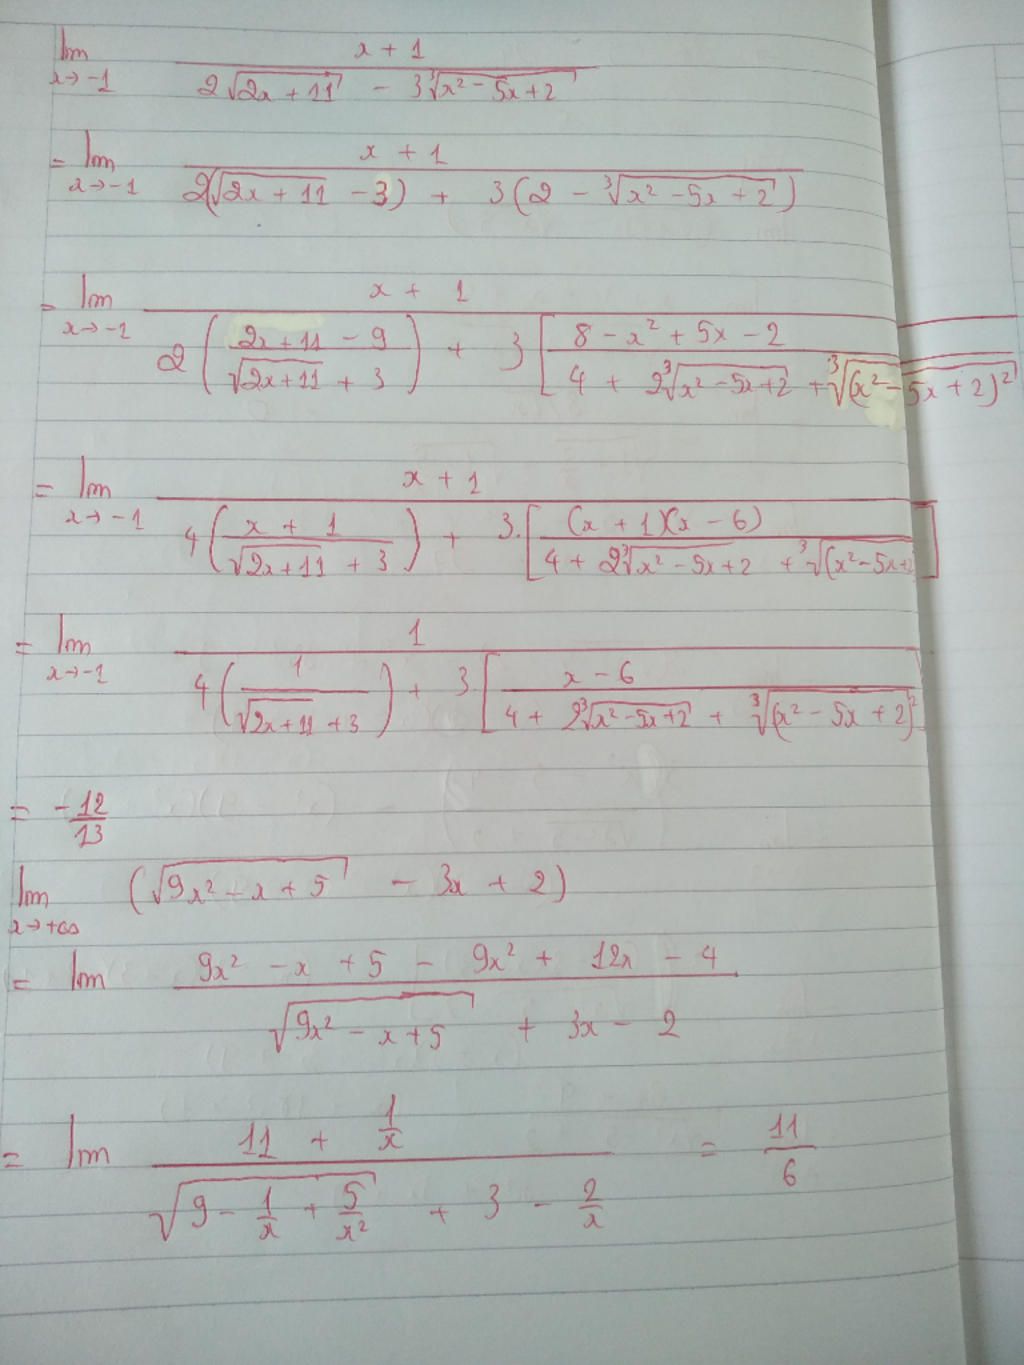 lim x→-1 (x + 1) / (2√(2x + 11) - 3∛(x² - 5x + 2))
= lim x→-1 (x + 1) / (2(√(2x + 11) - 3) + 3(2 - ∛(x² - 5x + 2)))
= lim x→-1 (x + 1) / (2((2x + 11 - 9) / (√(2x + 11) + 3)) + 3[(8 - x² + 5x - 2) / (4 + 2∛(x² - 5x + 2) + ∛(x² - 5x + 2)²)
= lim x→-1 (x + 1) / (4((x + 1) / (√(2x + 11) + 3)) + 3.[(x + 1)(x - 6) / (4 + 2∛(x² - 5x + 2) + ∛(x² - 5x + 2)])
= lim x→-1 1 / (4(1 / (√(2x + 11) + 3)) + 3[(x - 6) / (4 + 2∛(x² - 5x + 2) + ∛(x² - 5x + 2)²)])
= -12/13
lim x→+∞ (√(9x² - x + 5) - 3x + 2)
= lim (9x² - x + 5 - 9x² + 12x - 4) / (√(9x² - x + 5) + 3x - 2)
= lim (11 + 1/x) / (√(9 - 1/x + 5/x²) + 3 - 2/x) = 11/6